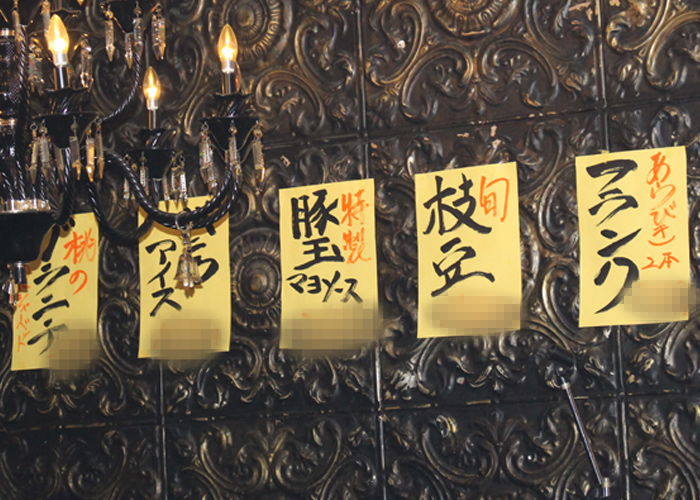 あらびき
2本
フランク
旬
枝豆
特製
豚玉
マヨソース
アイス
桃の
グラニテ
シャーベット